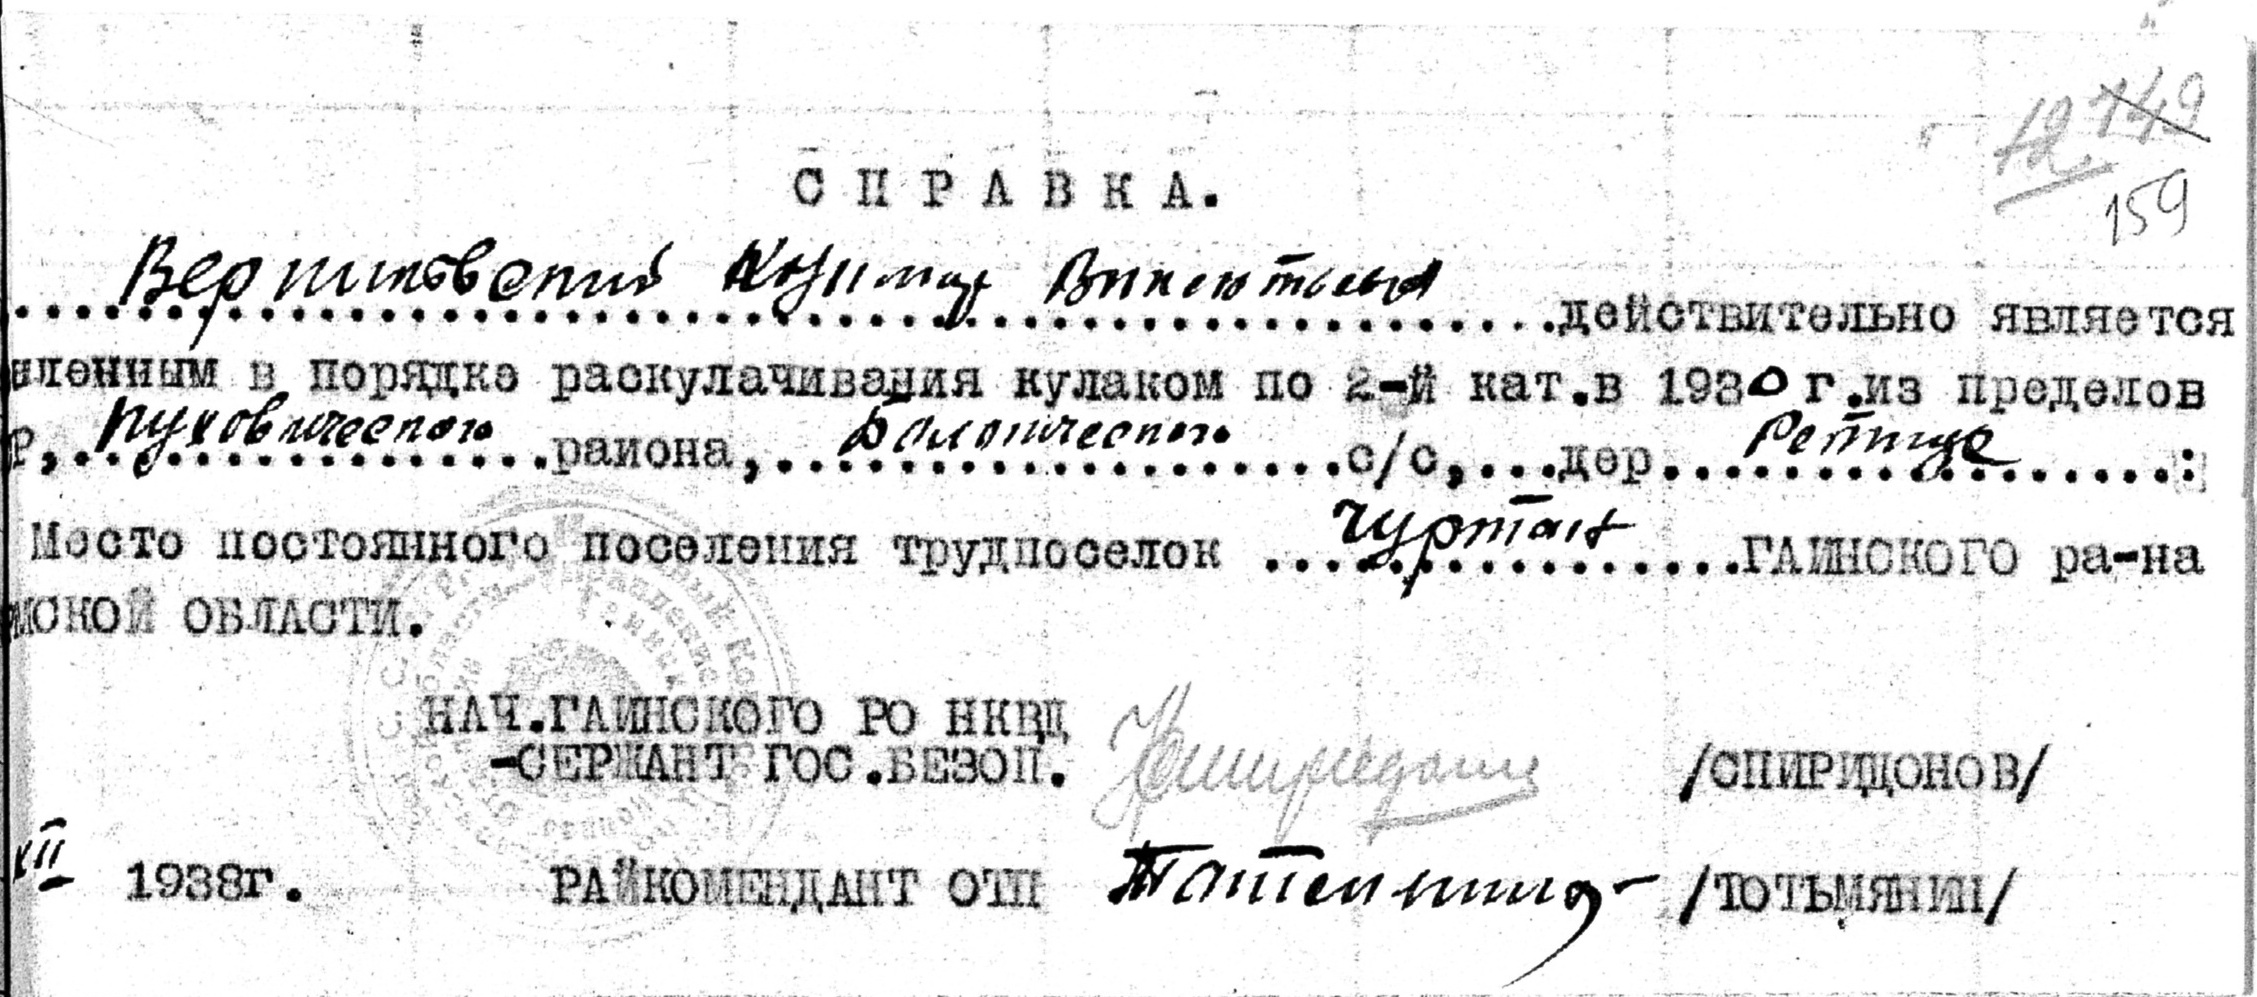 12. 149
159
СПРАВКА.
Вершиловский Казимир Викентьев
..........действительно является
вленным в порядке раскулачивания кулаком по 2-й кат.в 1930 г.из пределов
Р, Пуховического района, Болотического с/с,...дер. Репище :
Место постоянного поселения трудпоселок Чуртан ГАИНСКОГО ра-на
МСКОЙ ОБЛАСТИ.
НАЧ.ГАИНСКОГО РО НКВД
-СЕРЖАНТ ГОС.БЕЗОП. /СПИРИДОНОВ/
XII 1938г. РАЙКОМЕНДАНТ ОТП /ТОТЬМЯНИН/